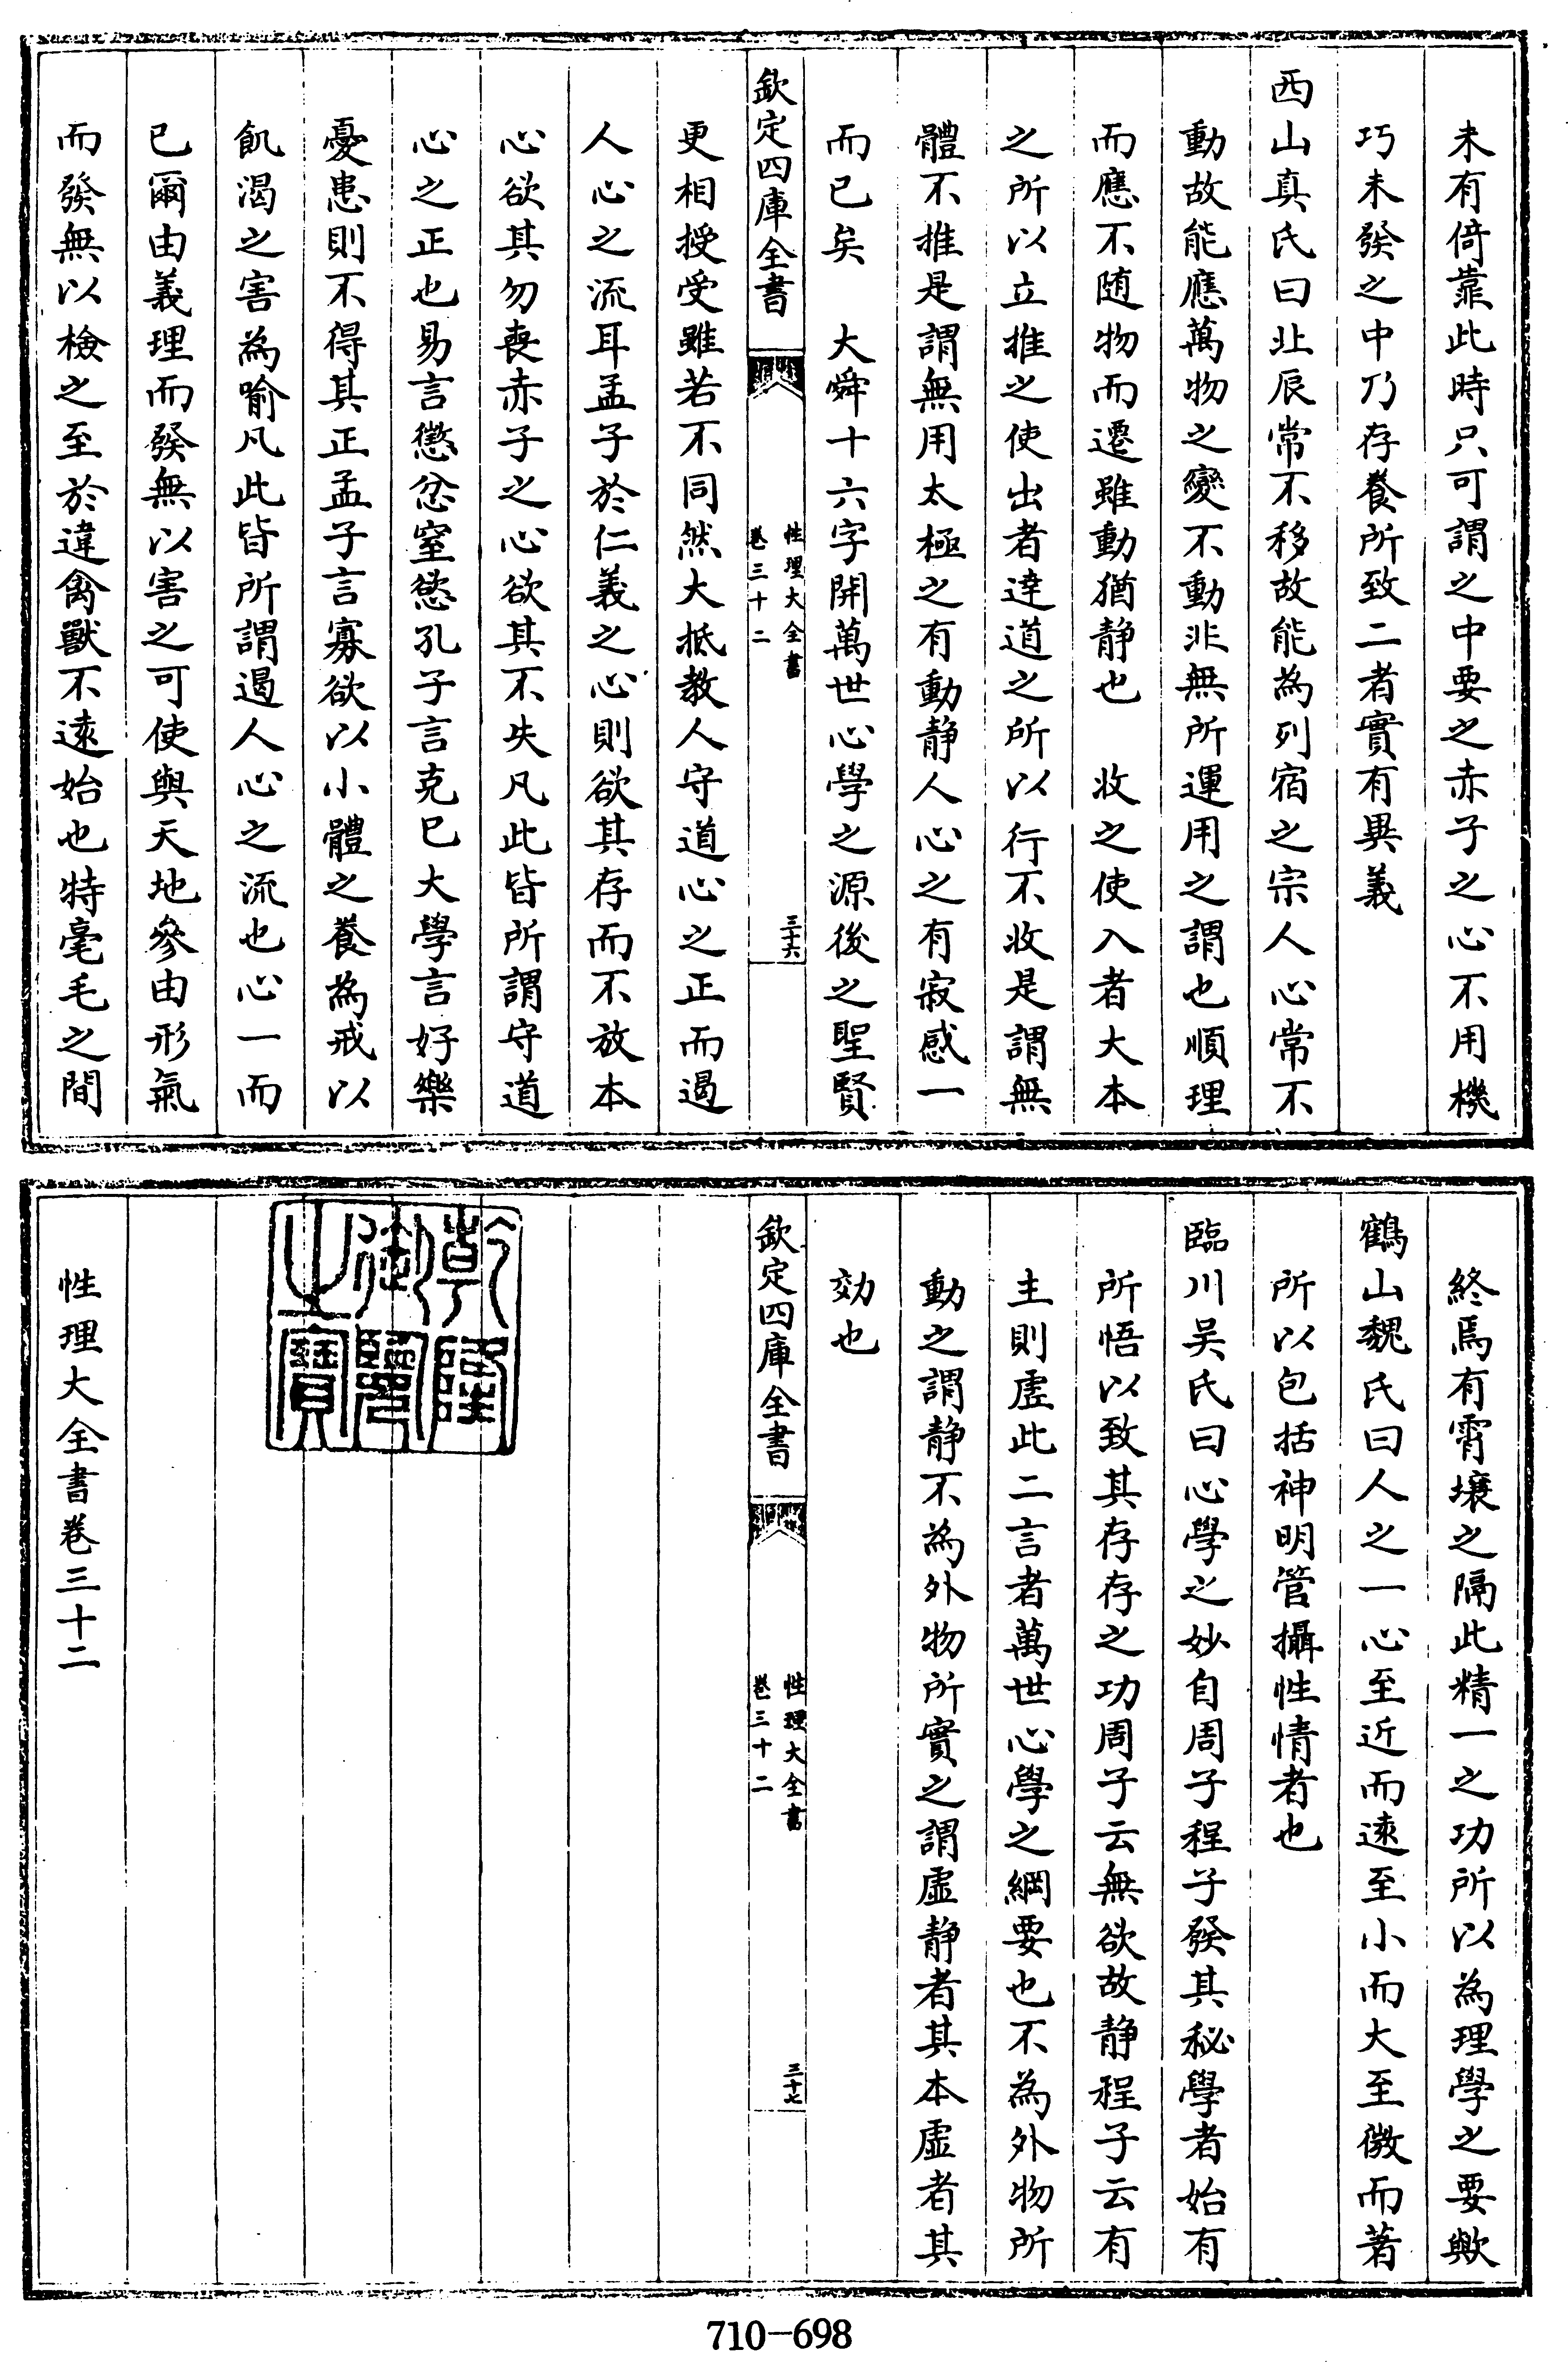 未有倚靠此時只可謂之中要之赤子之心不用機
巧未發之中乃存養所致二者實有異義
西山真氏曰北辰常不移故能為列宿之宗人心常不
動故能應萬物之變不動非無所運用之謂也順理
而應不随物而遷雖動猶静也　收之使入者大本
之所以立推之使出者達道之所以行不收是謂無
體不推是謂無用太極之有動静人心之有寂感一
而已矣　大舜十六字開萬世心學之源後之聖賢
欽定四庫全書
性理大全書
卷三十二
三十六
更相授受雖若不同然大抵教人守道心之正而遏
人心之流耳孟子於仁義之心則欲其存而不放本
心欲其勿喪赤子之心欲其不失凡此皆所謂守道
心之正也易言懲忿窒慾孔子言克已大學言好樂
憂患則不得其正孟子言寡欲以小體之養為戒以
飢渴之害為喻凡此皆所謂遏人心之流也心一而
已爾由義理而發無以害之可使與天地參由形氣
而發無以檢之至於違禽獸不逺始也特毫毛之間
終焉有霄壤之隔此精一之功所以為理學之要歟
鶴山魏氏曰人之一心至近而逺至小而大至微而著
所以包括神明管攝性情者也
臨川吴氏曰心學之妙自周子程子發其秘學者始有
所悟以致其存存之功周子云無欲故静程子云有
主則虛此二言者萬世心學之綱要也不為外物所
動之謂静不為外物所實之謂虛静者其本虛者其
効也
欽定四庫全書
性理大全書
卷三十二
三十七
乾隆御覽之寶
性理大全書卷三十二
710-698